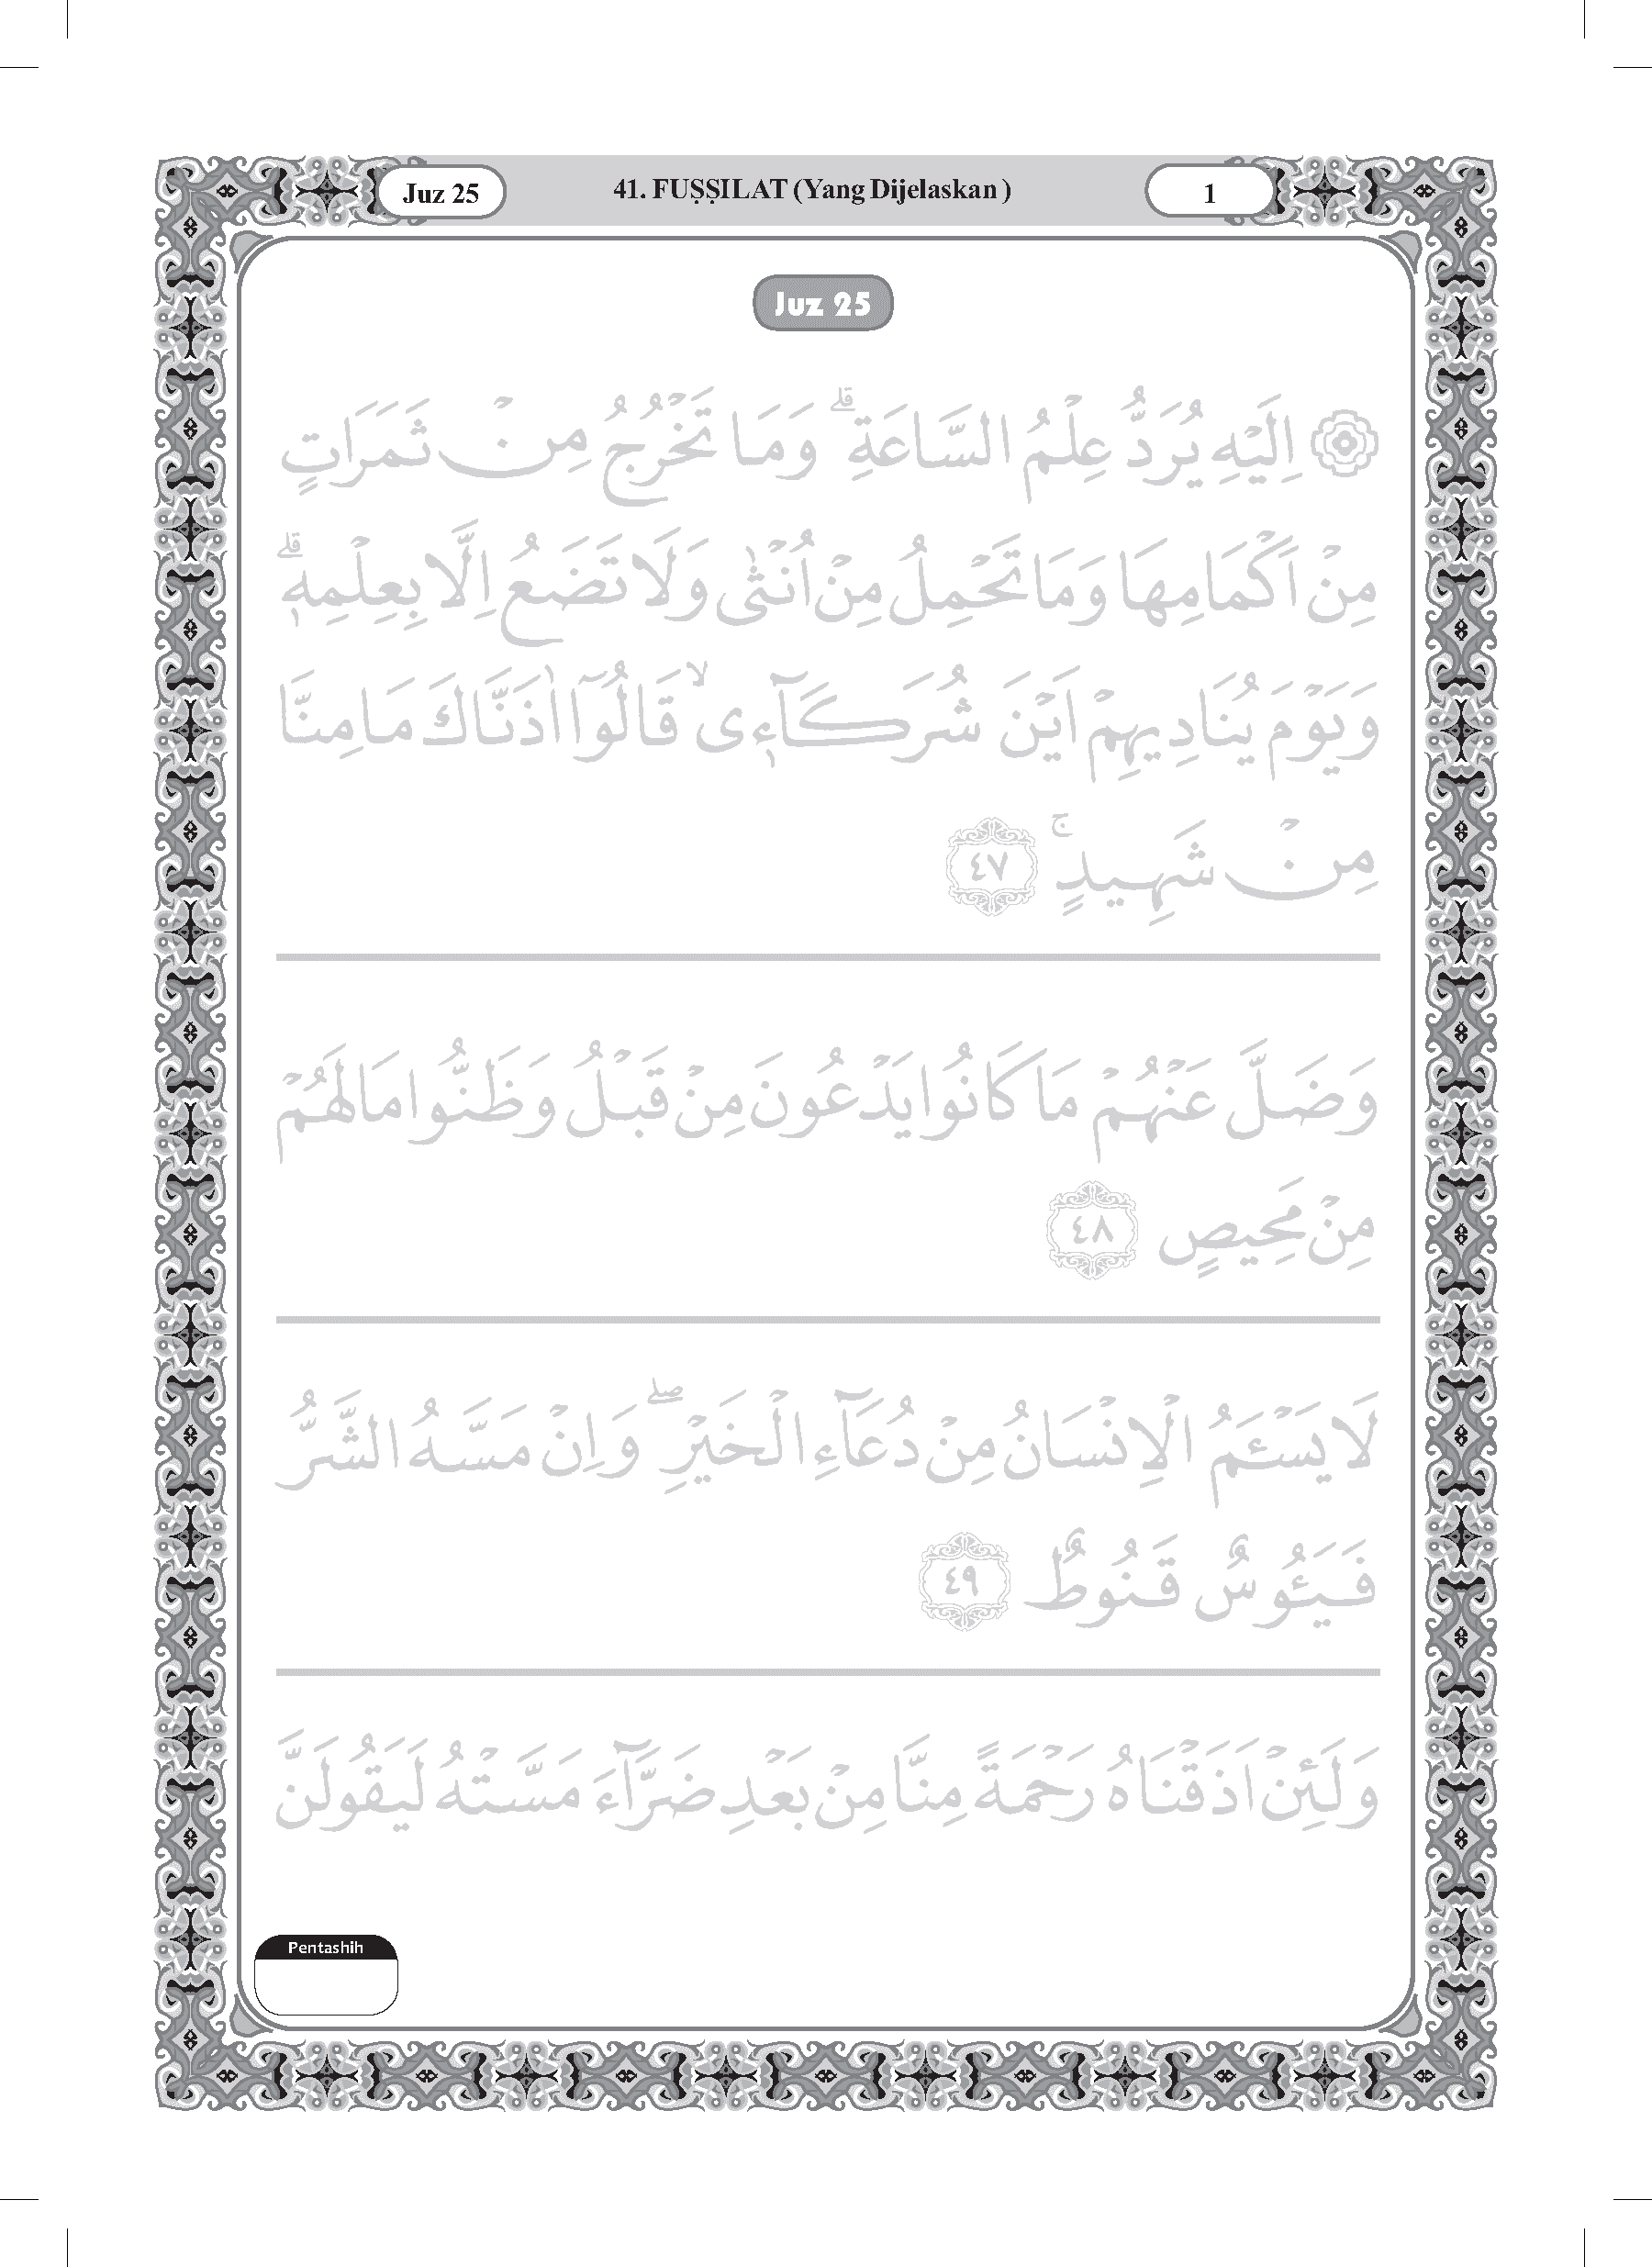 Juz 25
41. FUṢṢILAT (Yang Dijelaskan )
1
Juz 25
۞ اِلَيْهِ يُرَدُّ عِلْمُ السَّاعَةِ ۗ وَمَا تَخْرُجُ مِنْ ثَمَرَاتٍ
مِنْ اَكْمَامِهَا وَمَا تَحْمِلُ مِنْ اُنْثٰى وَلَا تَضَعُ اِلَّا بِعِلْمِهٖ ۗ
وَيَوْمَ يُنَادِيْهِمْ اَيْنَ شُرَكَاۤءِيْ ۙ قَالُوْٓا اٰذَنّٰكَ مَا مِنَّا
مِنْ شَهِيْدٍ ۚ ٤٧
وَضَلَّ عَنْهُمْ مَا كَانُوْا يَدْعُوْنَ مِنْ قَبْلُ وَظَنُّوْا مَا لَهُمْ
مِنْ مَحِيْصٍ ٤٨
لَا يَسْـَٔمُ الْاِنْسَانُ مِنْ دُعَاۤءِ الْخَيْرِ ۖ وَاِنْ مَسَّهُ الشَّرُّ
فَيَـُٔوْسٌ قَنُوْطٌ ٤٩
وَلَىِٕنْ اَذَقْنَاهُ رَحْمَةً مِنَّا مِنْ بَعْدِ ضَرَّاۤءَ مَسَّتْهُ لَيَقُوْلَنَّ
Pentashih